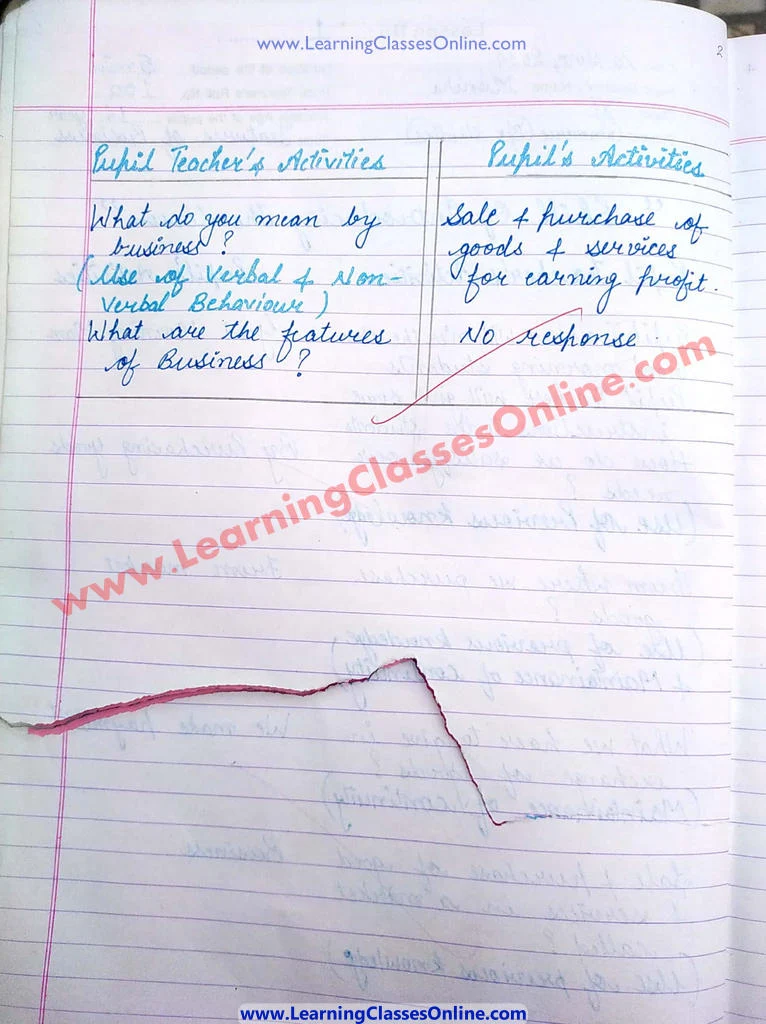 www.LearningClassesOnline.com
2
Pupil Teacher's Activities
Pupil's Activities
What do you mean by
business?
(Use of Verbal & Non-
Verbal Behaviour)
What are the features
of Business?
Sale & purchase of
goods & services
for earning profit.
No response.
www.LearningClassesOnline.com
www.LearningClassesOnline.com